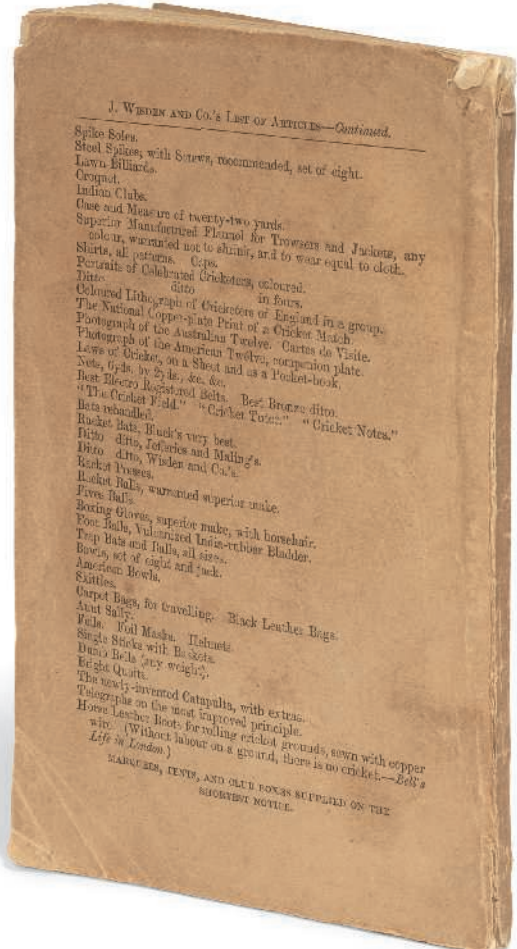 J. WISDEN AND CO.'S LIST OF ARTICLES—Continued.
Spike Soles.
Steel Spikes, with Screws, recommended, set of eight.
Lawn Billiards.
Croquet.
Indian Clubs.
Case and Measure of twenty-two yards.
Superior Manufactured Flannel for Trowsers and Jackets, any
colour, warranted not to shrink, and to wear equal to cloth.
Shirts, all patterns. Caps.
Portraits of Celebrated Cricketers, coloured.
Ditto ditto in fours.
Coloured Lithograph of Cricketers of England in a group.
The National Copper-plate Print of a Cricket Match.
Photograph of the Australian Twelve. Cartes de Visite.
Photograph of the American Twelve, companion plate.
Laws of Cricket, on a Sheet and as a Pocket-book.
Nets, 6yds. by 2yds., &c. &c.
Best Electro Registered Belts. Best Bronze ditto.
"The Cricket Field." "Cricket Tutor." "Cricket Notes."
Bats rehandled.
Racket Bats, Buck's very best.
Ditto ditto, Jefferies and Maling's.
Ditto ditto, Wisden and Co.'s.
Racket Presses.
Racket Balls, warranted superior make.
Fives Balls.
Boxing Gloves, superior make, with horsehair.
Foot Balls, Vulcanized India-rubber Bladder.
Trap Bats and Balls, all sizes.
Bowls, set of eight and jack.
American Bowls.
Skittles.
Carpet Bags, for travelling. Black Leather Bags.
Aunt Sally.
Foils. Foil Masks. Helmets.
Single Sticks with Baskets.
Dumb Bells (any weight).
Bright Quoits.
The newly-invented Catapulta, with extras.
Telegraphs on the most improved principle.
Horse Leather Boots for rolling cricket grounds, sewn with copper
wire. (Without labour on a ground, there is no cricket.—Bell's
Life in London.)
MARQUEES, TENTS, AND CLUB BOXES SUPPLIED ON THE
SHORTEST NOTICE.